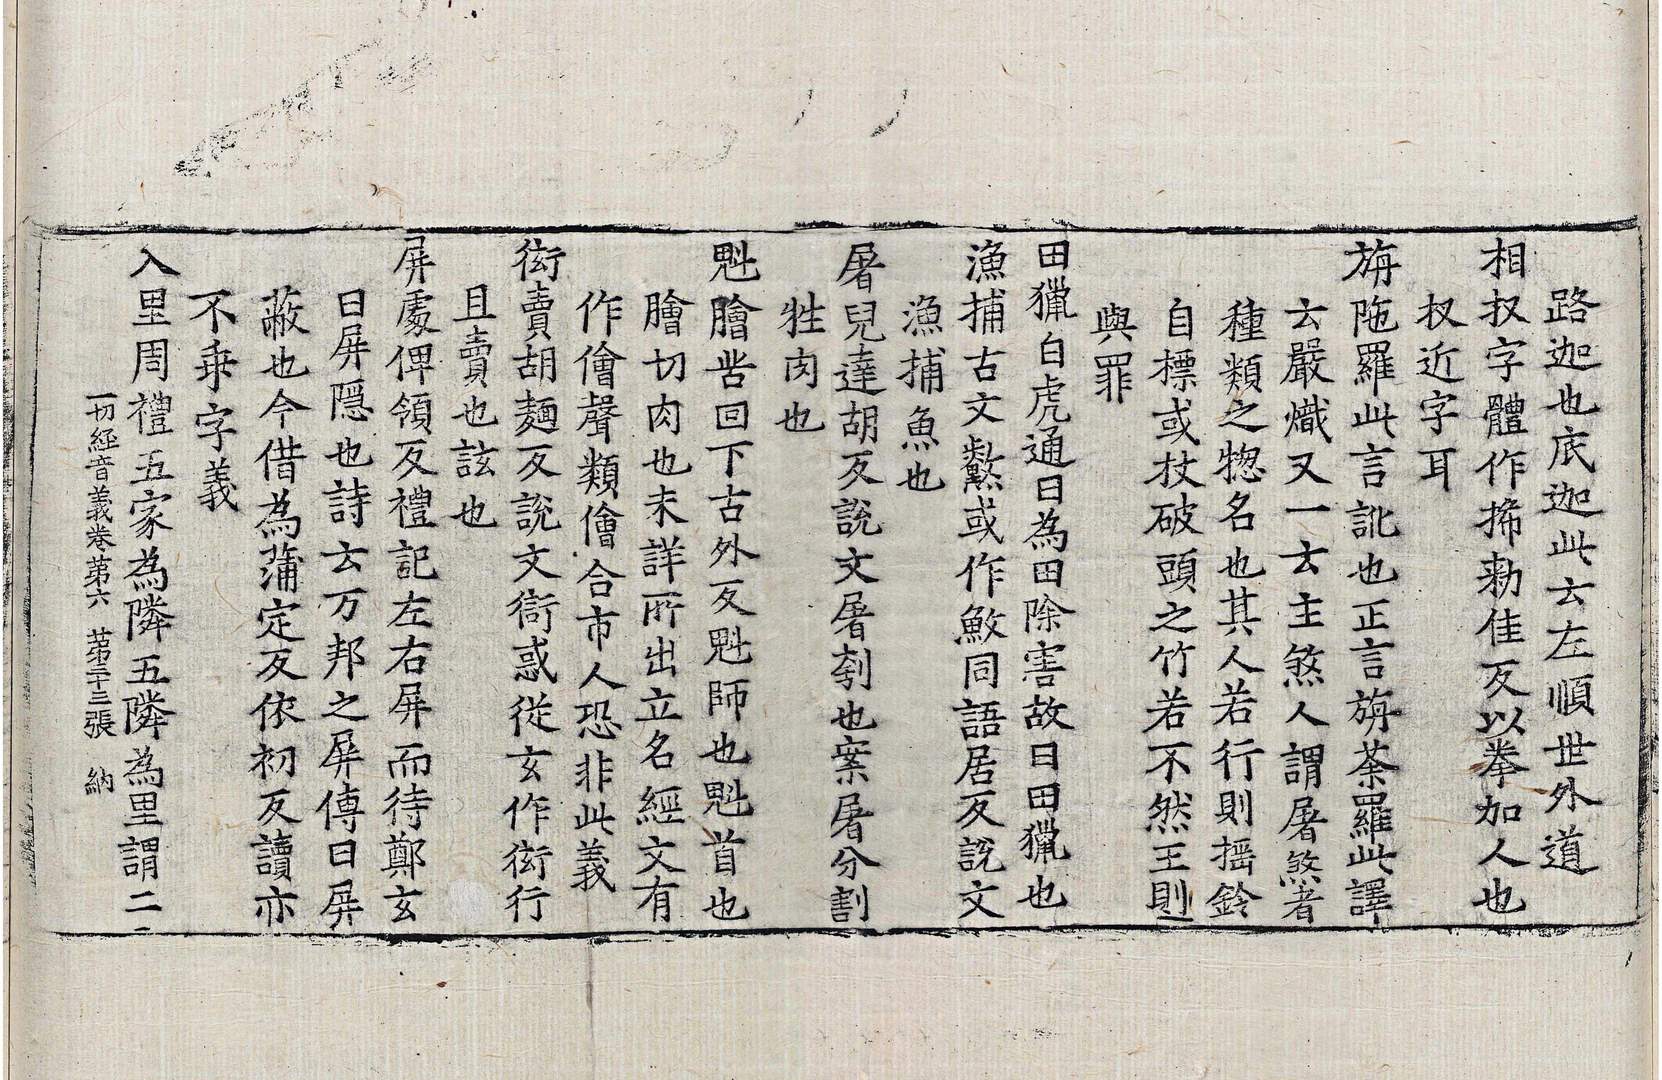 路迦也底迦此云左順世外道
相扠字體作㨖勑佳反以拳加人也
扠近字耳
旃陁羅此言訛也正言旃荼羅此譯
云嚴熾又一云主煞人謂屠煞者
種類之惣名也其人若行則摇鈴
自標或杖破頭之竹若不然王則
與罪
田獵白虎通曰為田除害故曰田獵也
漁捕古文䱷或作䰻同語居反說文
漁捕魚也
屠兒達胡反說文屠刳也案屠分割
牲肉也
魁膾苦回下古外反魁師也魁首也
膾切肉也未詳所出立名經文有
作儈聲類儈合市人恐非此義
衒賣胡麺反說文衒或從玄作衒行
且賣也該也
屏處俾領反禮記左右屏而待鄭玄
曰屏隱也詩云万邦之屏傳曰屏
蔽也今借為蒲定反依初反讀亦
不乖字義
入里周禮五家為隣五隣為里謂二
一切經音義卷第六 第二十三張 納